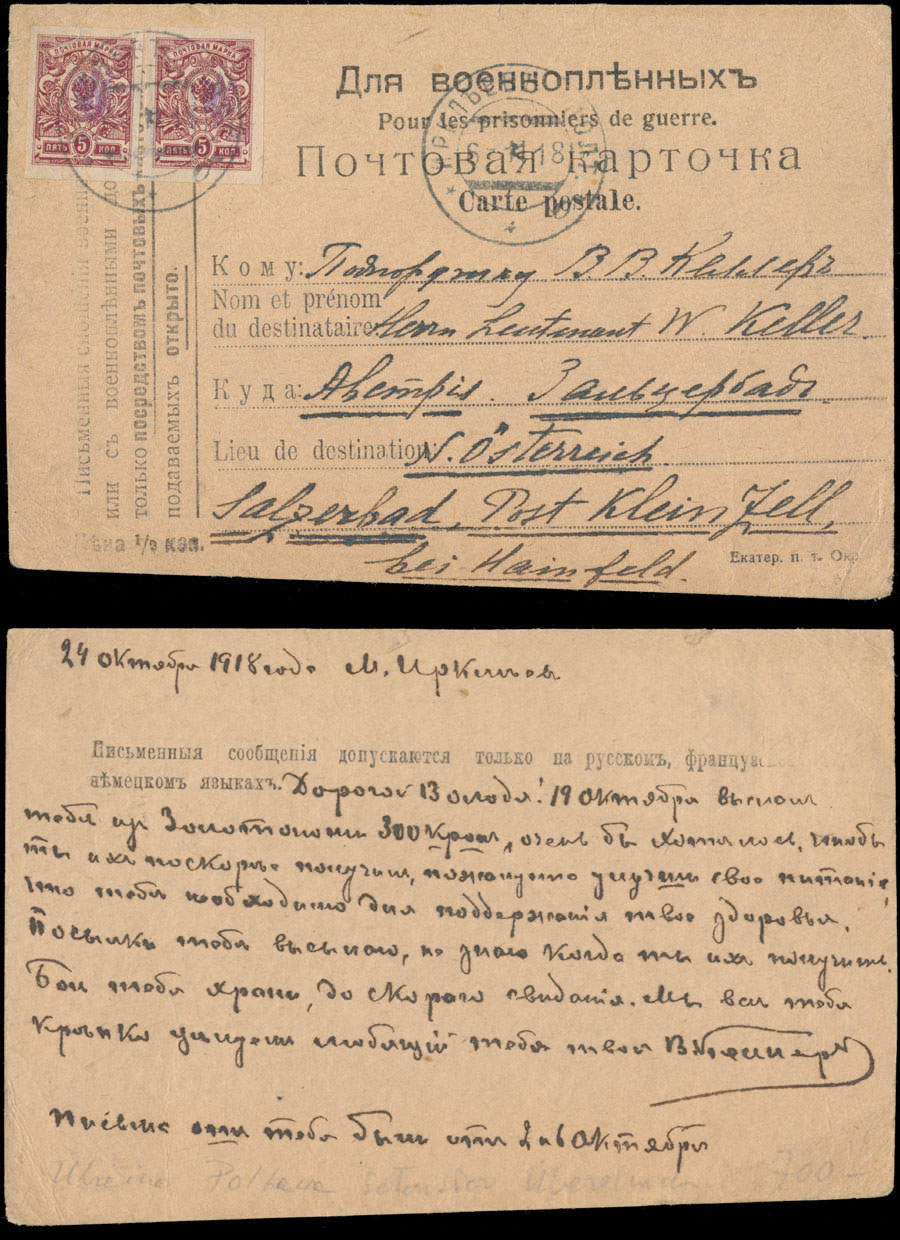 ПОЧТОВАЯ МАРКА ПОЧТОВАЯ МАРКА
5 5
ПЯТЬ КОП ПЯТЬ КОП
Для военноплѣнныхъ
Pour les prisonniers de guerre.
Почтовая карточка
Carte postale.
18
Письменныя сношенія
или съ военноплѣнными
только посредствомъ почтовыхъ
подаваемыхъ открыто.
Цѣна ½ коп.
Кому: В. В Келлеръ
Nom et prénom
du destinataire: Herrn Leutenant W. Keller
Куда: Австрія. Зальцербадъ
Lieu de destination: N. Österreich
Salzerbad, Post Klein Zell,
bei Hainfeld.
Екатер. п. т. Окр
24 октября 1918 года М. Ирклѣев
Письменныя сообщенія допускаются только на русскомъ, француз
нѣмецкомъ языкахъ. Дорогой Володя! 19 октября выслал
тебѣ из Золотоноши 300 крон, очень бы хотѣлось, чтобы
ты их поскорѣе получил, пожалуйста улучши свое питаніе,
что тебѣ необходимо для поддержанія твоего здоровья.
Посылки тебѣ высылаю, не знаю когда ты их получишь.
Бог тебя храни, до скораго свиданія. Мы всѣ тебя
крѣпко цѣлуем любящій тебя твой В Келлеръ
от тебя были от 2 и 6 Октября
Ukraine Poltava
700-